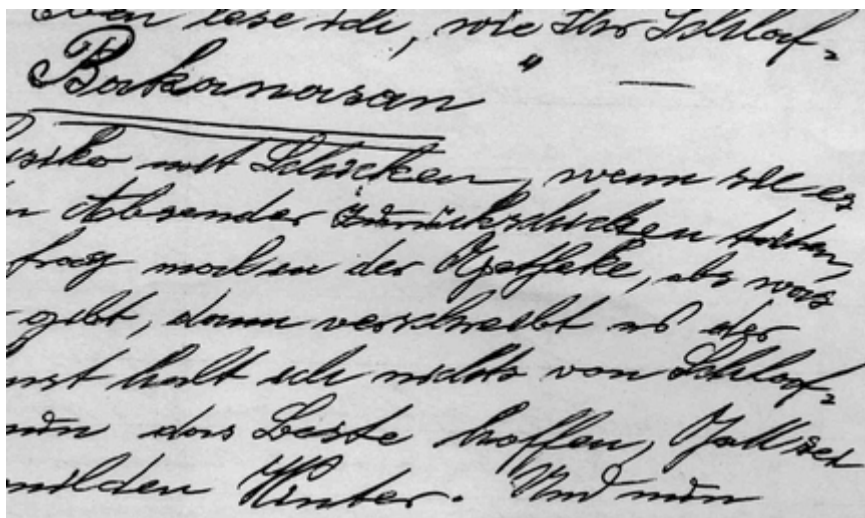 lese ich, wie Ihr Schlaf-
Bakanasan "
mit Schicken, wenn sie es
Absender zurückschicken täten,
frag mal in der Apotheke, obs was
gibt, dann verschreibt es der
halt ich nichts von Schlaf-
nun das Beste hoffen,
milden Winter. Und nun